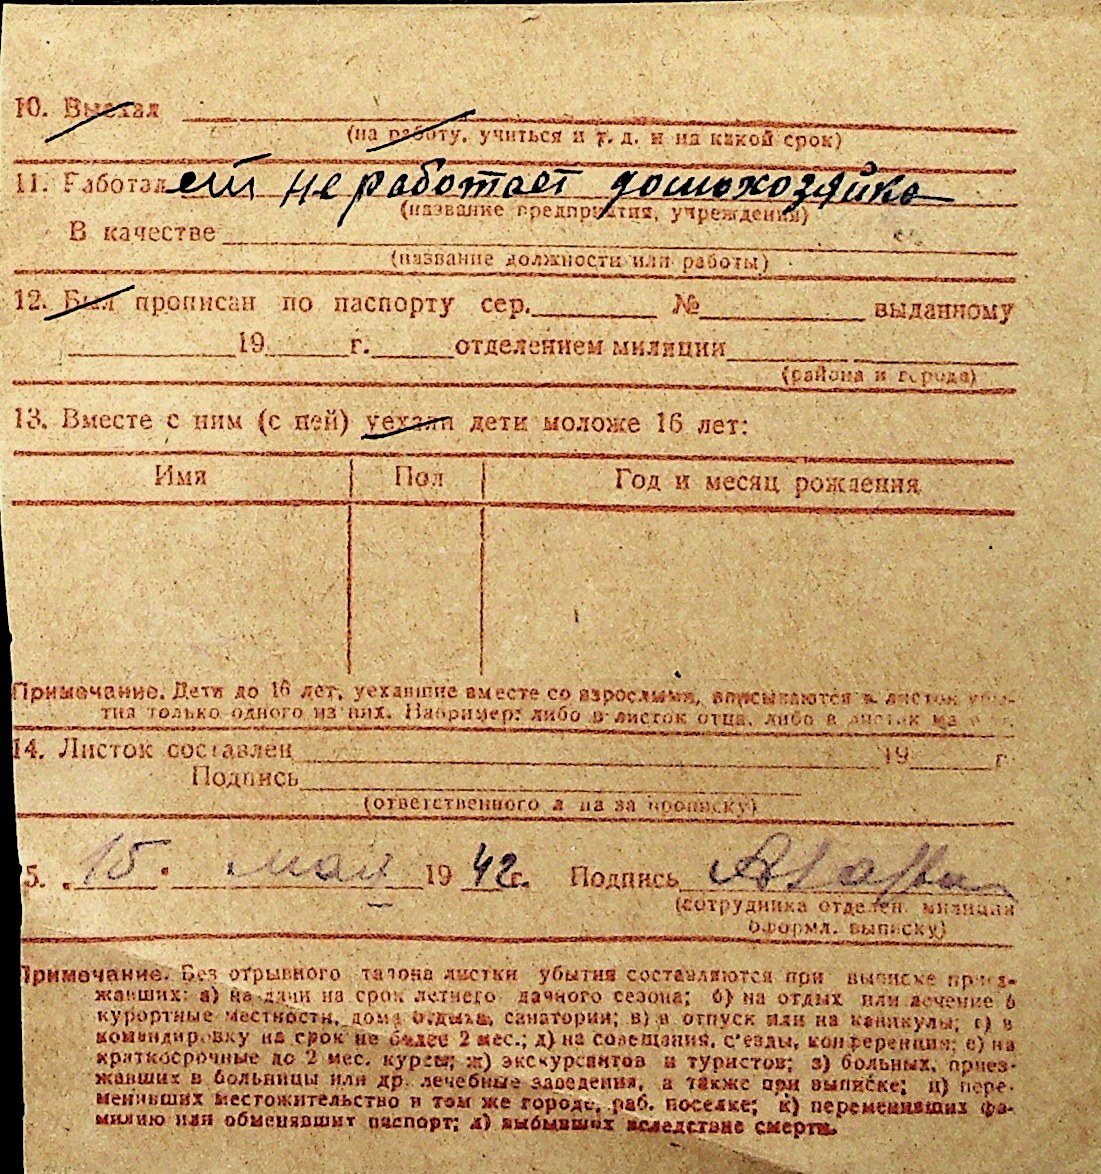 10. Выехал
(на работу, учиться и т. д. и на какой срок)
11. Работал не работает домохозяйка
(название предприятия, учреждения)
В качестве
(название должности или работы)
12. Был прописан по паспорту сер. № выданному
19 г. отделением милиции
(района и города)
13. Вместе с ним (с ней) уехали дети моложе 16 лет:
Имя Пол Год и месяц рождения
Примечание. Дети до 16 лет, уехавшие вместе со взрослыми, вписываются в листок убы-
тия только одного из них. Например: либо в листок отца, либо в листок
14. Листок составлен 19 г.
Подпись
(ответственного лица за прописку)
5. 15. мая 1942г. Подпись
(сотрудника отделен. милиции
оформл. выписку)
Примечание. Без отрывного талона листки убытия составляются при выписке приез-
жавших: а) на дачи на срок летнего дачного сезона; б) на отдых или лечение в
курортные местности, дома отдыха, санатории; в) в отпуск или на каникулы; г) в
командировку на срок не более 2 мес.; д) на совещания, с'езды, конференция; е) на
краткосрочные до 2 мес. курсы; ж) экскурсантов и туристов; з) больных, приез-
жавших в больницы или др. лечебные заведения, а также при выписке; и) пере-
менивших местожительство в том же городе, раб. поселке; к) переменивших фа-
милию или обменявшит паспорт; л) выбывших вследствие смерти.